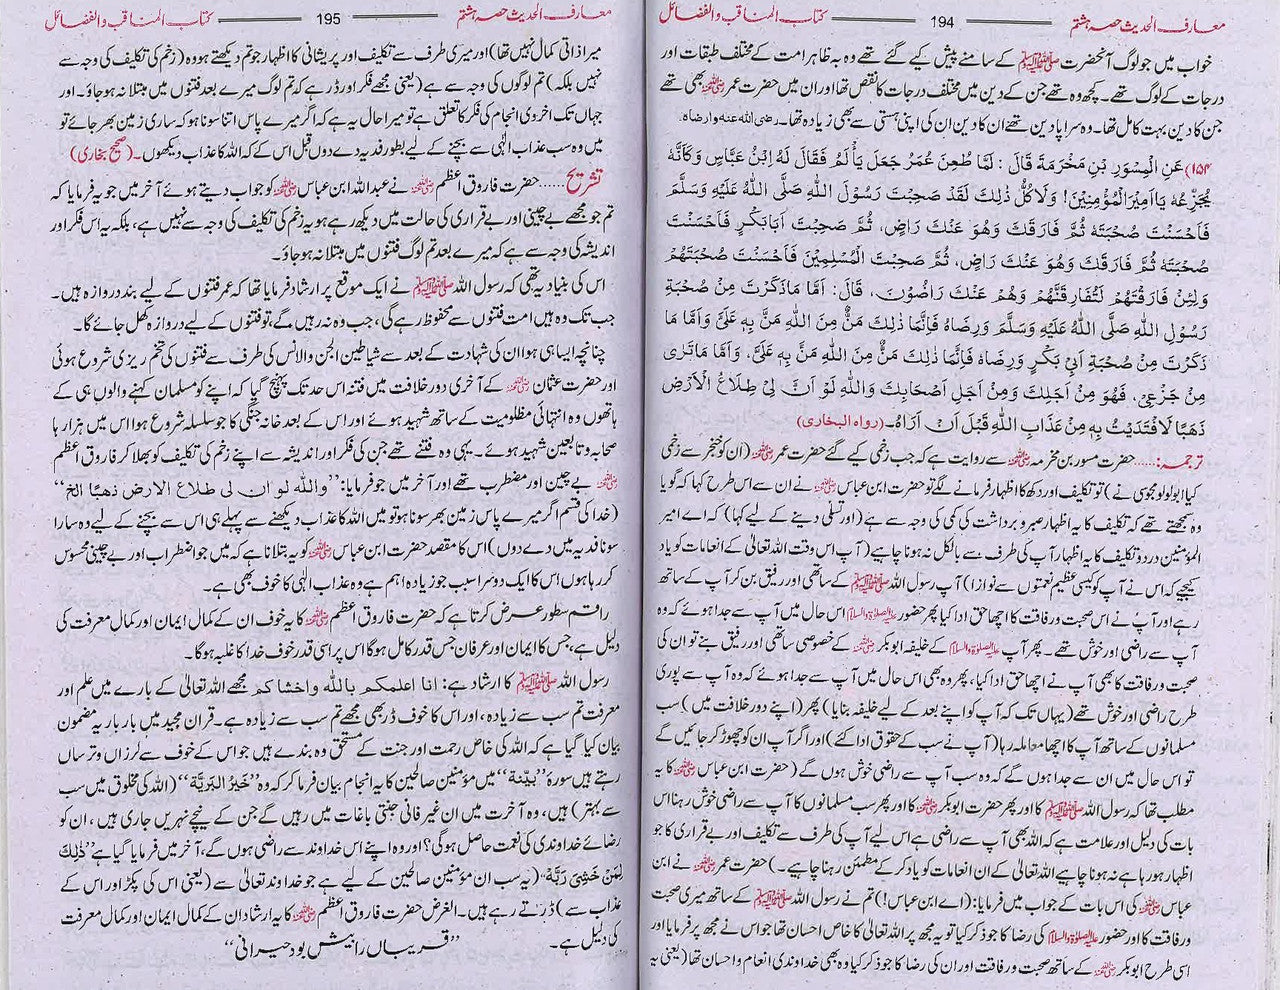 معارف الحدیث حصہ ہشتم ——— 194 ——— کتاب المناقب والفضائل
خواب میں جو لوگ آنحضرت ﷺ کے سامنے پیش کیے گئے تھے وہ بہ ظاہر امت کے مختلف طبقات اور
درجات کے لوگ تھے۔ کچھ وہ تھے جن کے دین میں مختلف درجات کا نقص تھا اور ان میں حضرت عمر رضی اللہ عنہ بھی تھے
جن کا دین بہت کامل تھا۔ وہ سراپا دین تھے ان کا دین ان کی اپنی ہستی سے بھی زیادہ تھا۔ رضی اللہ عنہ وارضاہ۔
۱۵۴) عَنِ الْمِسْوَرِ بْنِ مَخْرَمَةَ قَالَ : لَمَّا طُعِنَ عُمَرُ جَعَلَ يَأْلَمُ فَقَالَ لَهُ اِبْنُ عَبَّاسٍ وَكَأَنَّهُ
يُجَزِّعُهُ يَا اَمِيْرَ الْمُؤْمِنِيْنَ! وَلَا كُلُّ ذٰلِكَ لَقَدْ صَحِبْتَ رَسُوْلَ اللهِ صَلَّى اللهُ عَلَيْهِ وَسَلَّمَ
فَاَحْسَنْتَ صُحْبَتَهُ ثُمَّ فَارَقَكَ وَهُوَ عَنْكَ رَاضٍ، ثُمَّ صَحِبْتَ اَبَابَكْرٍ فَاَحْسَنْتَ
صُحْبَتَهُ ثُمَّ فَارَقَكَ وَهُوَ عَنْكَ رَاضٍ، ثُمَّ صَحِبْتَ الْمُسْلِمِيْنَ فَاَحْسَنْتَ صُحْبَتَهُمْ
وَلَئِنْ فَارَقْتَهُمْ لَتُفَارِقَنَّهُمْ وَهُمْ عَنْكَ رَاضُوْنَ، قَالَ: اَمَّا مَاذَكَرْتَ مِنْ صُحْبَةِ
رَسُوْلِ اللهِ صَلَّى اللهُ عَلَيْهِ وَسَلَّمَ وَرِضَاهُ فَاِنَّمَا ذٰلِكَ مَنٌّ مِنَ اللهِ مَنَّ بِهِ عَلَىَّ وَاَمَّا مَا
ذَكَرْتَ مِنْ صُحْبَةِ اَبِىْ بَكْرٍ وَرِضَاهُ فَاِنَّمَا ذٰلِكَ مَنٌّ مِنَ اللهِ مَنَّ بِهِ عَلَىَّ، وَاَمَّا مَاتَرٰى
مِنْ جَزَعِىْ، فَهُوَ مِنْ اَجَلِكَ وَمِنْ اَجَلِ اَصْحَابِكَ وَاللهِ لَوْ اَنَّ لِىْ طِلَاعَ الْاَرْضِ
ذَهَبًا لَافْتَدَيْتُ بِهِ مِنْ عَذَابِ اللهِ قَبْلَ اَنْ اَرَاهُ۔ (رواہ البخاری)
ترجمہ:...... حضرت مسور بن مخرمہ رضی اللہ عنہ سے روایت ہے کہ جب زخمی کیے گئے حضرت عمر رضی اللہ عنہ (ان کو خنجر سے زخمی
کیا ابو لولو مجوسی نے) تو تکلیف اور دکھ کا اظہار فرمانے لگے تو حضرت ابن عباس رضی اللہ عنہ نے ان سے اس طرح کہا کہ گویا
وہ سمجھتے تھے کہ تکلیف کا یہ اظہار صبر و برداشت کی کمی کی وجہ سے ہے (اور تسلی دینے کے لیے کہا) کہ اے امیر
المؤمنین درد و تکلیف کا یہ اظہار آپ کی طرف سے بالکل نہ ہونا چاہیے (آپ اس وقت اللہ تعالیٰ کے انعامات کو یاد
کیجیے کہ اس نے آپ کو کیسی عظیم نعمتوں سے نوازا) آپ رسول اللہ ﷺ کے ساتھی اور رفیق بن کر آپ کے ساتھ
رہے اور آپ نے اس صحبت و رفاقت کا اچھا حق ادا کیا پھر حضور علیہ الصلوٰۃ والسلام اس حال میں آپ سے جدا ہوئے کہ وہ
آپ سے راضی اور خوش تھے۔ پھر آپ علیہ الصلوٰۃ والسلام کے خلیفہ ابوبکر رضی اللہ عنہ کے خصوصی ساتھی اور رفیق بنے تو ان کی
صحبت و رفاقت کا بھی آپ نے اچھا حق ادا کیا، پھر وہ بھی اس حال میں آپ سے جدا ہوئے کہ وہ آپ سے پوری
طرح راضی اور خوش تھے (یہاں تک کہ آپ کو اپنے بعد کے لیے خلیفہ بنایا) پھر (اپنے دور خلافت میں) سب
مسلمانوں کے ساتھ آپ کا اچھا معاملہ رہا (آپ نے سب کے حقوق ادا کئے) اور اگر آپ ان کو چھوڑ کر جائیں گے
تو اس حال میں ان سے جدا ہوں گے کہ وہ سب آپ سے راضی خوش ہوں گے (حضرت ابن عباس رضی اللہ عنہ کا یہ
مطلب تھا کہ رسول اللہ ﷺ کا اور پھر حضرت ابوبکر رضی اللہ عنہ کا اور پھر سب مسلمانوں کا آپ سے راضی خوش رہنا اس
بات کی دلیل اور علامت ہے کہ اللہ بھی آپ سے راضی ہے اس لیے آپ کی طرف سے تکلیف اور بے قراری کا جو
اظہار ہو رہا ہے نہ ہونا چاہیے اللہ تعالیٰ کے ان انعامات کو یاد کر کے مطمئن رہنا چاہیے۔) (حضرت عمر رضی اللہ عنہ نے ابن
عباس رضی اللہ عنہ کی اس بات کے جواب میں فرمایا: (اے ابن عباس!) تم نے رسول اللہ ﷺ کے ساتھ میری صحبت
ورفاقت کا اور حضور علیہ الصلوٰۃ والسلام کی رضا کا جو ذکر کیا تو یہ مجھ پر اللہ تعالیٰ کا خاص احسان تھا جو اس نے مجھ پر فرمایا اور
اسی طرح ابوبکر رضی اللہ عنہ کے ساتھ صحبت ورفاقت اور ان کی رضا کا جو ذکر کیا وہ بھی خداوندی انعام و احسان تھا (یعنی یہ
معارف الحدیث حصہ ہشتم ——— 195 ——— کتاب المناقب والفضائل
میرا ذاتی کمال نہیں تھا) اور میری طرف سے تکلیف اور پریشانی کا اظہار جو تم دیکھتے ہو وہ (زخم کی تکلیف کی وجہ سے
نہیں بلکہ) تم لوگوں کی وجہ سے ہے (یعنی مجھے فکر اور ڈر ہے کہ تم لوگ میرے بعد فتنوں میں مبتلا نہ ہو جاؤ۔ اور
جہاں تک اخروی انجام کی فکر کا تعلق ہے تو میرا حال یہ ہے کہ اگر میرے پاس اتنا سونا ہو کہ ساری زمین بھر جائے تو
میں وہ سب عذاب الٰہی سے بچنے کے لیے بطور فدیہ دے دوں قبل اس کے کہ اللہ کا عذاب دیکھوں۔ (صحیح بخاری)
تشریح...... حضرت فاروق اعظم رضی اللہ عنہ نے عبداللہ ابن عباس رضی اللہ عنہ کو جواب دیتے ہوئے آخر میں جو یہ فرمایا کہ
تم جو مجھے بے چینی اور بے قراری کی حالت میں دیکھ رہے ہو یہ زخم کی تکلیف کی وجہ سے نہیں ہے، بلکہ یہ اس فکر اور
اندیشہ کی وجہ سے ہے کہ میرے بعد تم لوگ فتنوں میں مبتلا نہ ہو جاؤ۔
اس کی بنیاد یہ تھی کہ رسول اللہ ﷺ نے ایک موقع پر ارشاد فرمایا تھا کہ عمر فتنوں کے لیے بند دروازہ ہیں۔
جب تک وہ ہیں امت فتنوں سے محفوظ رہے گی، جب وہ نہ رہیں گے، تو فتنوں کے لیے دروازہ کھل جائے گا۔
چنانچہ ایسا ہی ہوا ان کی شہادت کے بعد سے شیاطین الجن والانس کی طرف سے فتنوں کی تخم ریزی شروع ہوئی
اور حضرت عثمان رضی اللہ عنہ کے آخری دور خلافت میں فتنہ اس حد تک پہنچ گیا کہ اپنے کو مسلمان کہنے والوں ہی کے
ہاتھوں وہ انتہائی مظلومیت کے ساتھ شہید ہوئے اور اس کے بعد خانہ جنگی کا جو سلسلہ شروع ہوا اس میں ہزارہا
صحابہ و تابعین شہید ہوئے۔ یہی وہ فتنے تھے جن کی فکر اور اندیشہ سے اپنے زخم کی تکلیف کو بھلا کر فاروق اعظم
رضی اللہ عنہ بے چین اور مضطرب تھے اور آخر میں جو فرمایا: "واللہ لو ان لی طلاع الارض ذھبًا الخ"
(خدا کی قسم اگر میرے پاس زمین بھر سونا ہو تو میں اللہ کا عذاب دیکھنے سے پہلے ہی اس سے بچنے کے لیے وہ سارا
سونا فدیہ میں دے دوں) اس کا مقصد حضرت ابن عباس رضی اللہ عنہ کو یہ بتلانا ہے کہ میں جو اضطراب اور بے چینی محسوس
کر رہا ہوں اس کا ایک دوسرا سبب جو زیادہ اہم ہے وہ عذاب الٰہی کا خوف بھی ہے۔
راقم سطور عرض کرتا ہے کہ حضرت فاروق اعظم رضی اللہ عنہ کا یہ خوف ان کے کمال ایمان اور کمال معرفت کی
دلیل ہے، جس کا ایمان اور عرفان جس قدر کامل ہوگا اس پر اسی قدر خوف خدا کا غلبہ ہوگا۔
رسول اللہ ﷺ کا ارشاد ہے: انا اعلمکم باللہ واخشاکم مجھے اللہ تعالیٰ کے بارے میں علم اور
معرفت تم سب سے زیادہ، اور اس کا خوف ڈر بھی مجھے تم سب سے زیادہ ہے۔ قران مجید میں بار بار یہ مضمون
بیان کیا گیا ہے کہ اللہ کی خاص رحمت اور جنت کے مستحق وہ بندے ہیں جو اس کے خوف سے لرزاں و ترساں
رہتے ہیں سورۂ "بیّنة" میں مؤمنین صالحین کا یہ انجام بیان فرما کر کہ وہ "خَیْرُ الْبَرِیَّة" (اللہ کی مخلوق میں سب
سے بہتر) ہیں، وہ آخرت میں ان غیر فانی جنتی باغات میں رہیں گے جن کے نیچے نہریں جاری ہیں، ان کو
رضائے خداوندی کی نعمت حاصل ہوگی؟ اور وہ اپنے اس خداوند سے راضی ہوں گے، آخر میں فرمایا گیا ہے "ذٰلِكَ
لِمَنْ خَشِیَ رَبَّهٗ" (یہ سب ان مؤمنین صالحین کے لیے ہے جو خداوند تعالیٰ سے (یعنی اس کی پکڑ اور اس کے
عذاب سے) ڈرتے رہے ہیں۔ الغرض حضرت فاروق اعظم رضی اللہ عنہ کا یہ ارشاد ان کے کمال ایمان اور کمال معرفت
کی دلیل ہے۔ "قریباں را بیش بود حیرانی"